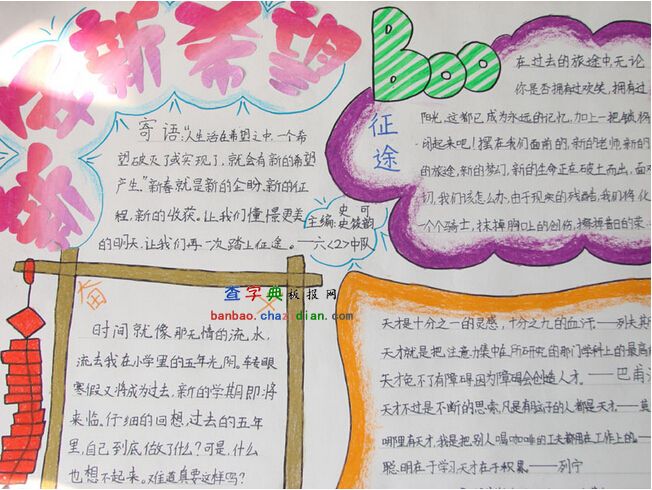 新希望
Boo
征途
寄语:"人生活在希望之中,一个希
望破灭了或实现了,就会有新的希望
产生。"新春就是新的企盼,新的征
程,新的收获。让我们憧憬更美
的明天,让我们再一次踏上征途。——六<2>中队
主编:史可
在过去的旅途中,无论
你是否拥有过欢笑,拥有过
阳光,这都已成为永远的记忆,加上一把锁将
闭起来吧!摆在我们面前的,新的老师,新的
的旅途,新的梦幻,新的生命正在破土而出,面
切,我们该怎么办:由于现实的残酷,我们将化
一个个骑士,抹掉胸口上的创伤,擦掉昔日的荣
奋
查字典板报网
banbao.chazidian.com
时间就像那无情的流水,
流去我在小学里的五年光阴。转眼
寒假又将成为过去,新的学期即将
来临。仔细的回想,过去的五年
里,自己到底做了什么?可是,什么
也想不起来。难道真要这样吗?
天才是十分之一的灵感,十分之九的血汗。——列夫
天才就是把注意力集中在所研究的那门学科上的最高
天才免不了有障碍,因为障碍会创造人才。——巴甫
天才不过是不断的思索,凡是有脑子的人都是天才。——莫
哪里有天才,我是把别人喝咖啡的工夫都用在工作上的。—
聪明在于学习,天才在于积累。——列宁